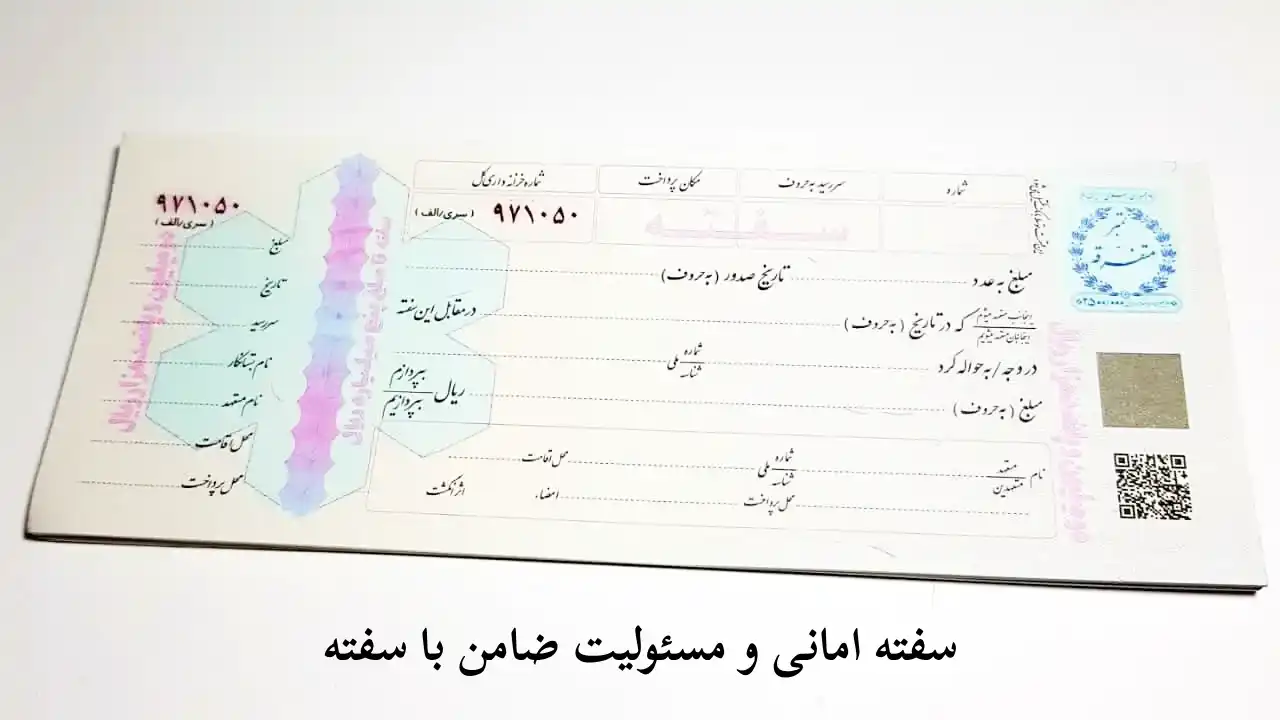 شماره
سررسید به حروف
مکان پرداخت
شماره خزانه داری کل
۹۷۱۰۵۰ (سری/الف)
سفته
مبلغ به عدد تاریخ صدور (به حروف)
اینجانب متعهد میشوم
اینجانبان متعهد میشویم
که در تاریخ (به حروف) در مقابل این سفته
در وجه / به حواله کرد شماره ملی
شناسه
مبلغ (به حروف) ریال بپردازم
بپردازیم
نام متعهد
متعهدین
شماره ملی
شناسه
محل اقامت
محل پرداخت امضاء اثر انگشت
تمبر
متفرقه
۹۷۱۰۵۰
(سری/الف)
مبلغ
تاریخ
سررسید
نام بستانکار
نام متعهد
محل اقامت
محل پرداخت
سفته امانی و مسئولیت ضامن با سفته